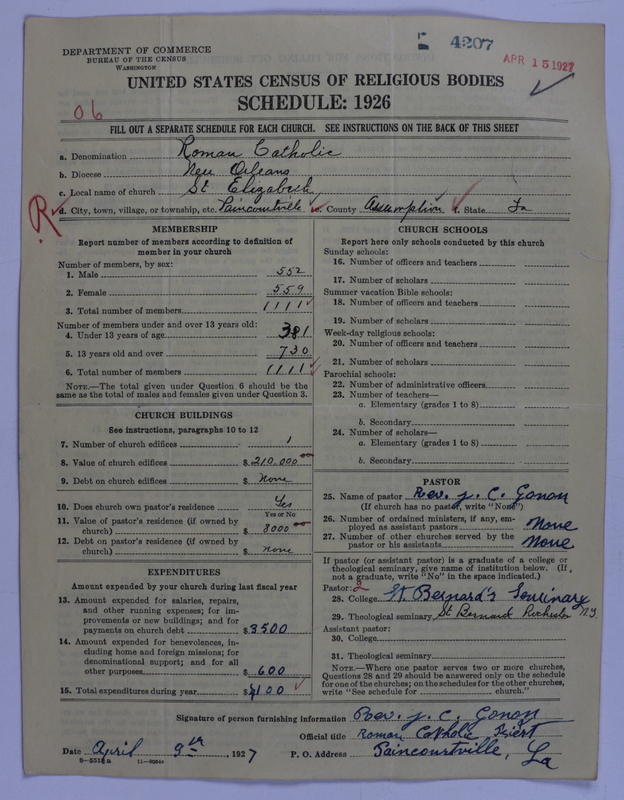 4207
APR 15 1927
DEPARTMENT OF COMMERCE
BUREAU OF THE CENSUS
WASHINGTON
UNITED STATES CENSUS OF RELIGIOUS BODIES
SCHEDULE: 1926
06
FILL OUT A SEPARATE SCHEDULE FOR EACH CHURCH. SEE INSTRUCTIONS ON THE BACK OF THIS SHEET
a. Denomination Roman Catholic
b. Diocese New Orleans
c. Local name of church St Elizabeth
R
d. City, town, village, or township, etc. Paincourtville e. County Assumption f. State La
MEMBERSHIP
Report number of members according to definition of
member in your church
Number of members, by sex:
1. Male 552
2. Female 559
3. Total number of members 1111
Number of members under and over 13 years old:
4. Under 13 years of age 381
5. 13 years old and over 730
6. Total number of members 1111
NOTE.—The total given under Question 6 should be the
same as the total of males and females given under Question 3.
CHURCH BUILDINGS
See instructions, paragraphs 10 to 12
7. Number of church edifices 1
8. Value of church edifices $ 210,000 00
9. Debt on church edifices $ none
10. Does church own pastor's residence Yes
Yes or No
11. Value of pastor's residence (if owned by
church) $ 8000 00
12. Debt on pastor's residence (if owned by
church) $ none
EXPENDITURES
Amount expended by your church during last fiscal year
13. Amount expended for salaries, repairs,
and other running expenses; for im-
provements or new buildings; and for
payments on church debt $ 3500
14. Amount expended for benevolences, in-
cluding home and foreign missions; for
denominational support; and for all
other purposes $ 600
15. Total expenditures during year $ 4100
CHURCH SCHOOLS
Report here only schools conducted by this church
Sunday schools:
16. Number of officers and teachers
17. Number of scholars
Summer vacation Bible schools:
18. Number of officers and teachers
19. Number of scholars
Week-day religious schools:
20. Number of officers and teachers
21. Number of scholars
Parochial schools:
22. Number of administrative officers
23. Number of teachers—
a. Elementary (grades 1 to 8)
b. Secondary
24. Number of scholars—
a. Elementary (grades 1 to 8)
b. Secondary
PASTOR
25. Name of pastor Rev. J. C. Gonon
(If church has no pastor, write "None")
26. Number of ordained ministers, if any, em-
ployed as assistant pastors none
27. Number of other churches served by the
pastor or his assistants none
If pastor (or assistant pastor) is a graduate of a college or
theological seminary, give name of institution below. (If
not a graduate, write "No" in the space indicated.)
Pastor: 2
28. College St. Bernard's Seminary
29. Theological seminary St Bernard Rochester N.Y.
Assistant pastor:
30. College
31. Theological seminary
NOTE.—Where one pastor serves two or more churches,
Questions 28 and 29 should be answered only on the schedule
for one of the churches; on the schedules for the other churches,
write "See schedule for church."
Signature of person furnishing information Rev. J. C. Gonon
Official title Roman Catholic Priest
Date April 9th, 1927 P. O. Address Paincourtville, La